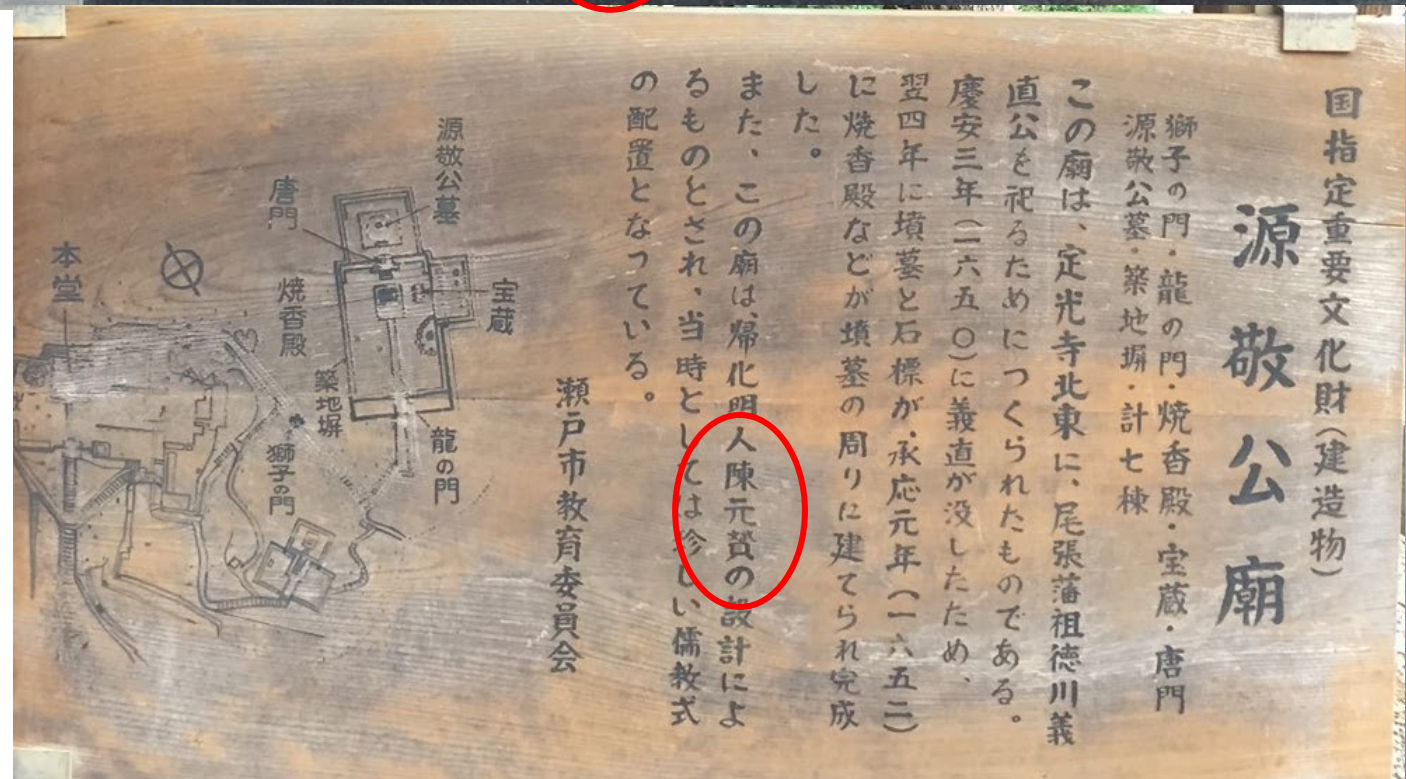 国指定重要文化財(建造物)
源敬公廟
獅子の門・龍の門・焼香殿・宝蔵・唐門
源敬公墓・築地塀・計七棟
この廟は、定光寺北東に、尾張藩祖徳川義
直公を祀るためにつくられたものである。
慶安三年(一六五〇)に義直が没したため、
翌四年に墳墓と石標が、承応元年(一六五二)
に焼香殿などが墳墓の周りに建てられ完成
した。
また、この廟は、帰化明人陳元贇の設計によ
るものとされ、当時としては珍しい儒教式
の配置となっている。
瀬戸市教育委員会
源敬公墓
唐門
宝蔵
焼香殿
本堂
築地塀
龍の門
獅子の門